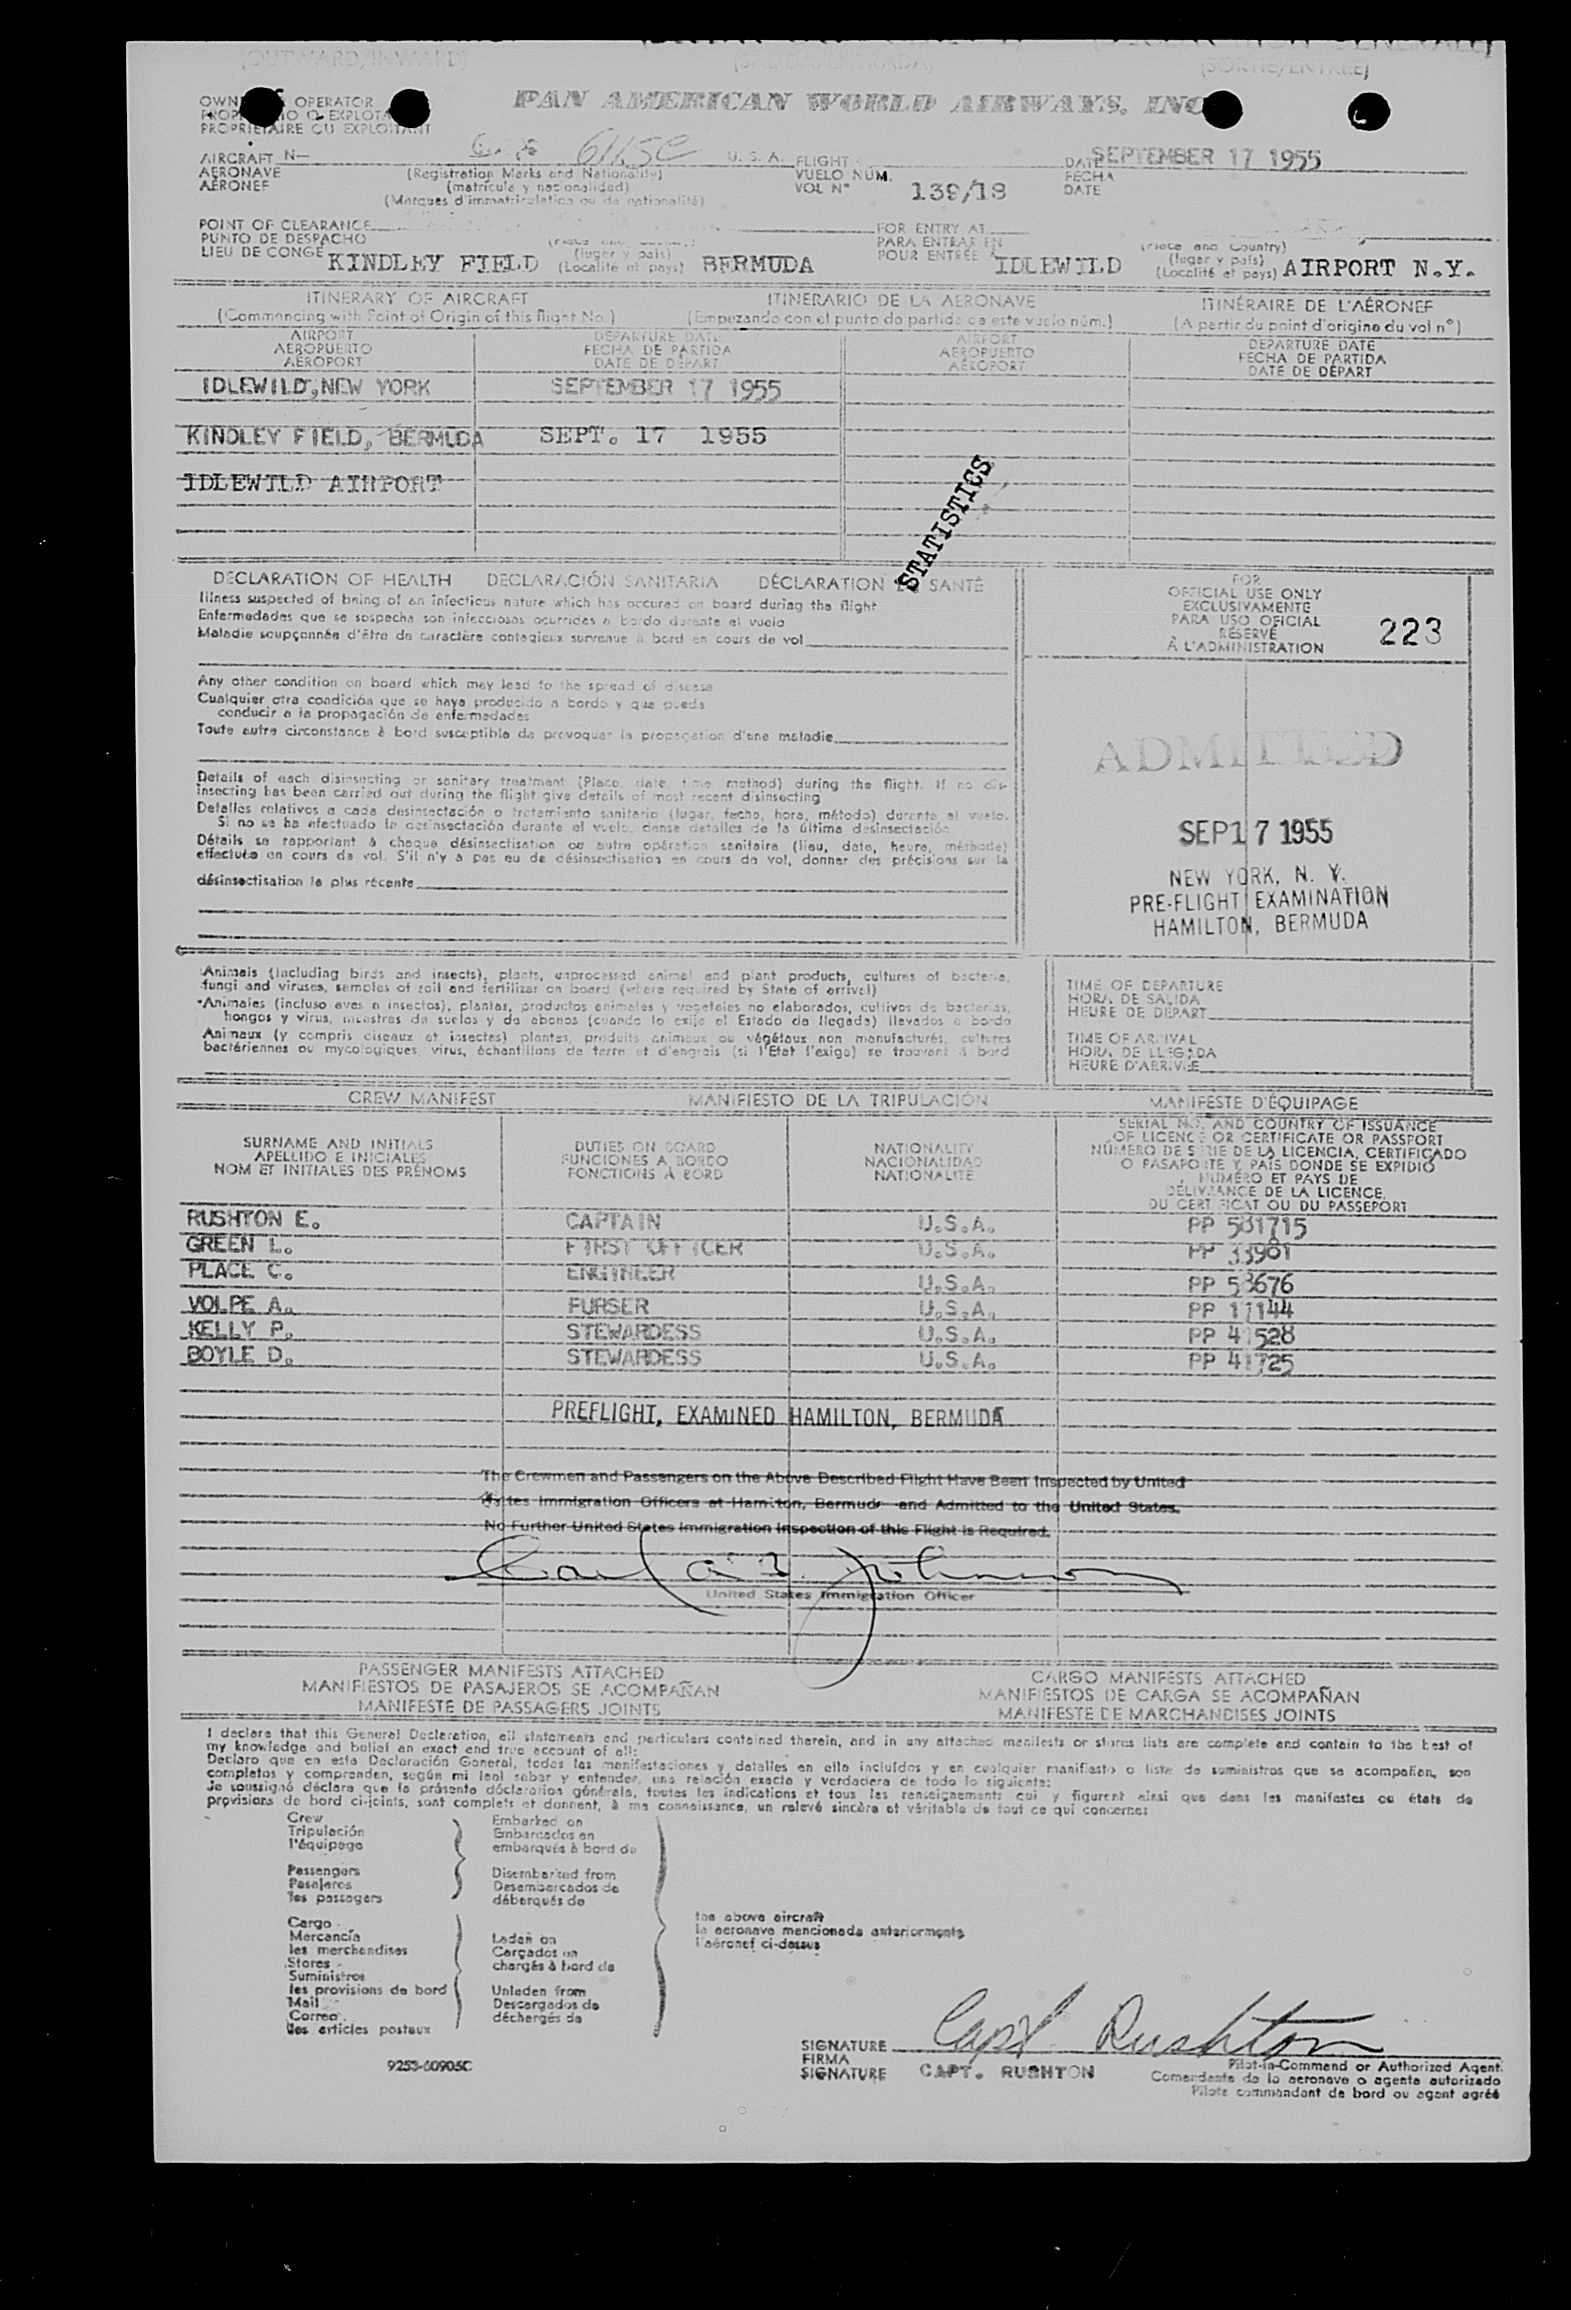 (OUTWARD/INWARD)
(SORTIE/ENTREE)
OWNER OR OPERATOR
PROPIETARIO O EXPLOTADOR
PROPRIÉTAIRE OU EXPLOITANT
PAN AMERICAN WORLD AIRWAYS, INC
AIRCRAFT N— U. S. A. FLIGHT DATE SEPTEMBER 17 1955
AERONAVE (Registration Marks and Nationality) VUELO NÚM. FECHA
AÉRONEF (matrícula y nacionalidad) VOL N° 139/18 DATE
(Marques d'immatriculation ou de nationalité)
POINT OF CLEARANCE FOR ENTRY AT
PUNTO DE DESPACHO (Place and Country) PARA ENTRAR EN (Place and Country)
LIEU DE CONGÉ KINDLEY FIELD (lugar y país) (Localité et pays) BERMUDA POUR ENTRÉE À IDLEWILD (lugar y país) (Localité et pays) AIRPORT N.Y.
ITINERARY OF AIRCRAFT ITINERARIO DE LA AERONAVE ITINÉRAIRE DE L'AÉRONEF
(Commencing with Point of Origin of this flight No.) (Empezando con el punto de partida de este vuelo núm.) (A partir du point d'origine du vol n°)
AIRPORT DEPARTURE DATE AIRPORT DEPARTURE DATE
AEROPUERTO FECHA DE PARTIDA AEROPUERTO FECHA DE PARTIDA
AÉROPORT DATE DE DÉPART AÉROPORT DATE DE DÉPART
IDLEWILD,NEW YORK SEPTEMBER 17 1955
KINDLEY FIELD, BERMUDA SEPT. 17 1955
IDLEWILD AIRPORT
STATISTICS
DECLARATION OF HEALTH DECLARACIÓN SANITARIA DÉCLARATION DE SANTÉ
Illness suspected of being of an infectious nature which has occured on board during the flight
Enfermedades que se sospecha son infecciosas ocurridas a bordo durante el vuelo
Maladie soupçonnée d'être de caractère contagieux survenue à bord en cours de vol
Any other condition on board which may lead to the spread of disease
Cualquier otra condición que se haya producido a bordo y que pueda
conducir a la propagación de enfermedades
Toute autre circonstance à bord susceptible de provoquer la propagation d'une maladie
Details of each disinsecting or sanitary treatment (Place, date, time, method) during the flight. If no dis-
insecting has been carried out during the flight give details of most recent disinsecting
Detalles relativos a cada desinsectación o tratamiento sanitario (lugar, fecha, hora, método) durante el vuelo.
Si no se ha efectuado la desinsectación durante el vuelo, dense detalles de la última desinsectación
Détails se rapportant à chaque désinsectisation ou autre opération sanitaire (lieu, date, heure, méthode)
effectuée en cours de vol. S'il n'y a pas eu de désinsectisation en cours de vol, donner des précisions sur la
désinsectisation la plus récente
FOR
OFFICIAL USE ONLY
EXCLUSIVAMENTE
PARA USO OFICIAL
RÉSERVÉ
À L'ADMINISTRATION
223
ADMITTED
SEP 17 1955
NEW YORK, N. Y.
PRE-FLIGHT EXAMINATION
HAMILTON, BERMUDA
Animals (including birds and insects), plants, unprocessed animal and plant products, cultures of bacteria,
fungi and viruses, samples of soil and fertilizer on board (where required by State of arrival)
Animales (incluso aves e insectos), plantas, productos animales y vegetales no elaborados, cultivos de bacterias,
hongos y virus, muestras de suelos y de abonos (cuando lo exija el Estado de llegada) llevados a bordo
Animaux (y compris oiseaux et insectes) plantes, produits animaux ou végétaux non manufacturés, cultures
bactériennes ou mycologiques, virus, échantillons de terre et d'engrais (si l'Etat l'exige) se trouvant à bord
TIME OF DEPARTURE
HORA DE SALIDA
HEURE DE DÉPART
TIME OF ARRIVAL
HORA DE LLEGADA
HEURE D'ARRIVÉE
CREW MANIFEST MANIFIESTO DE LA TRIPULACIÓN MANIFESTE D'ÉQUIPAGE
SURNAME AND INITIALS
APELLIDO E INICIALES
NOM ET INITIALES DES PRÉNOMS
DUTIES ON BOARD
FUNCIONES A BORDO
FONCTIONS À BORD
NATIONALITY
NACIONALIDAD
NATIONALITÉ
SERIAL NO. AND COUNTRY OF ISSUANCE
OF LICENCE OR CERTIFICATE OR PASSPORT
NÚMERO DE SERIE DE LA LICENCIA, CERTIFICADO
O PASAPORTE Y PAÍS DONDE SE EXPIDIÓ
NUMÉRO ET PAYS DE
DÉLIVRANCE DE LA LICENCE,
DU CERTIFICAT OU DU PASSEPORT
RUSHTON E. CAPTAIN U.S.A. PP 581715
GREEN L. FIRST OFFICER U.S.A. PP 33901
PLACE C. ENGINEER U.S.A. PP 53676
VOLPE A. PURSER U.S.A. PP 11144
KELLY P. STEWARDESS U.S.A. PP 41528
BOYLE D. STEWARDESS U.S.A. PP 41725
PREFLIGHT, EXAMINED HAMILTON, BERMUDA
The Crewmen and Passengers on the Above Described Flight Have Been Inspected by United
States Immigration Officers at Hamilton, Bermuda and Admitted to the United States.
No Further United States Immigration Inspection of this Flight is Required.
United States Immigration Officer
PASSENGER MANIFESTS ATTACHED CARGO MANIFESTS ATTACHED
MANIFIESTOS DE PASAJEROS SE ACOMPAÑAN MANIFIESTOS DE CARGA SE ACOMPAÑAN
MANIFESTE DE PASSAGERS JOINTS MANIFESTE DE MARCHANDISES JOINTS
I declare that this General Declaration, all statements and particulars contained therein, and in any attached manifests or stores lists are complete and contain to the best of
my knowledge and belief an exact and true account of all:
Declaro que en esta Declaración General, todas las manifestaciones y detalles en ella incluídos y en cualquier manifiesto o lista de suministros que se acompañan, son
completos y comprenden, según mi leal saber y entender, una relación exacta y verdadera de todo lo siguiente:
Je soussigné déclare que la présente déclaration générale, toutes les indications et tous les renseignements qui y figurent ainsi que dans les manifestes ou états de
provisions de bord ci-joints, sont complets et donnent, à ma connaissance, un relevé sincère et véritable de tout ce qui concerne:
Crew Embarked on
Tripulación Embarcados en
l'équipage embarqués à bord de
Passengers Disembarked from
Pasajeros Desembarcados de
les passagers débarqués de
Cargo
Mercancía Laden on
les merchandises Cargados en
Stores chargés à bord de
Suministros
les provisions de bord Unladen from
Mail Descargados de
Correo déchargés de
les articles postaux
the above aircraft
la aeronave mencionada anteriormente
l'aéronef ci-dessus
SIGNATURE Capt Rushton
FIRMA
SIGNATURE CAPT. RUSHTON
Pilot-in-Command or Authorized Agent
Comandante de la aeronave o agente autorizado
Pilote commandant de bord ou agent agréé
9253-60905C